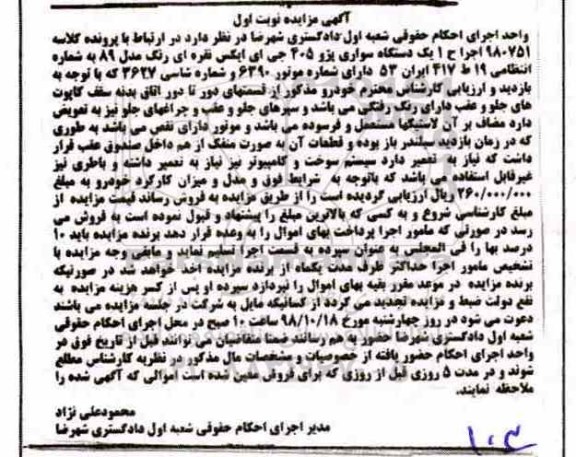 آگهی مزایده نوبت اول
واحد اجرای احکام حقوقی شعبه اول دادگستری شهرضا در نظر دارد در ارتباط با پرونده کلاسه
۹۸۰۷۵۱ اجرا ح ۱ یک دستگاه سواری پژو ۴۰۵ جی ای ایکس نقره ای رنگ مدل ۸۹ به شماره
انتظامی ۱۹ ط ۴۱۷ ایران ۵۳ دارای شماره موتور ۶۳۹۰ و شماره شاسی ۳۶۲۷ که با توجه به
بازدید و ارزیابی کارشناس محترم خودرو مذکور از قسمتهای دور تا دور اتاق بدنه سقف کاپوت
های جلو و عقب دارای رنگ رفتگی می باشد و سپرهای جلو و عقب و چراغهای جلو نیز به تعویض
دارد مضاف بر آن لاستیکها مستعمل و فرسوده می باشد و موتور دارای نقص می باشد به طوری
که در زمان بازدید سیلندر باز بوده و قطعات آن به صورت منفک از هم داخل صندوق عقب قرار
داشت که نیاز به تعمیر دارد سیستم سوخت و کامپیوتر نیز نیاز به تعمیر داشته و باطری نیز
غیرقابل استفاده می باشد که باتوجه به شرایط فوق و مدل و میزان کارکرد خودرو به مبلغ
۲۶۰/۰۰۰/۰۰۰ ریال ارزیابی گردیده است را از طریق مزایده به فروش رساند قیمت مزایده از
مبلغ کارشناسی شروع و به کسی که بالاترین مبلغ را پیشنهاد و قبول نموده است به فروش می
رسد در صورتی که مامور اجرا پرداخت بهای اموال را به وعده قرار دهد برنده مزایده باید ۱۰
درصد بها را فی المجلس به عنوان سپرده به قسمت اجرا تسلیم نماید و مابقی وجه مزایده با
تشخیص مامور اجرا حداکثر ظرف مدت یکماه از برنده مزایده اخذ خواهد شد در صورتیکه
برنده مزایده در موعد مقرر بقیه بهای اموال را نپردازد سپرده او پس از کسر هزینه مزایده به
نفع دولت ضبط و مزایده تجدید می گردد از کسانیکه مایل به شرکت در جلسه مزایده می باشند
دعوت می شود در روز چهارشنبه مورخ ۹۸/۱۰/۱۸ ساعت ۱۰ صبح در محل اجرای احکام حقوقی
شعبه اول دادگستری شهرضا حضور به هم رسانند ضمنا متقاضیان می توانند قبل از تاریخ فوق در
واحد اجرای احکام حضور یافته از خصوصیات و مشخصات مال مذکور در نظریه کارشناس مطلع
شوند و در مدت ۵ روزی قبل از روزی که برای فروش معین شده است اموالی که آگهی شده را
ملاحظه نمایند.
محمودعلی نژاد
مدیر اجرای احکام حقوقی شعبه اول دادگستری شهرضا
۱۰۳